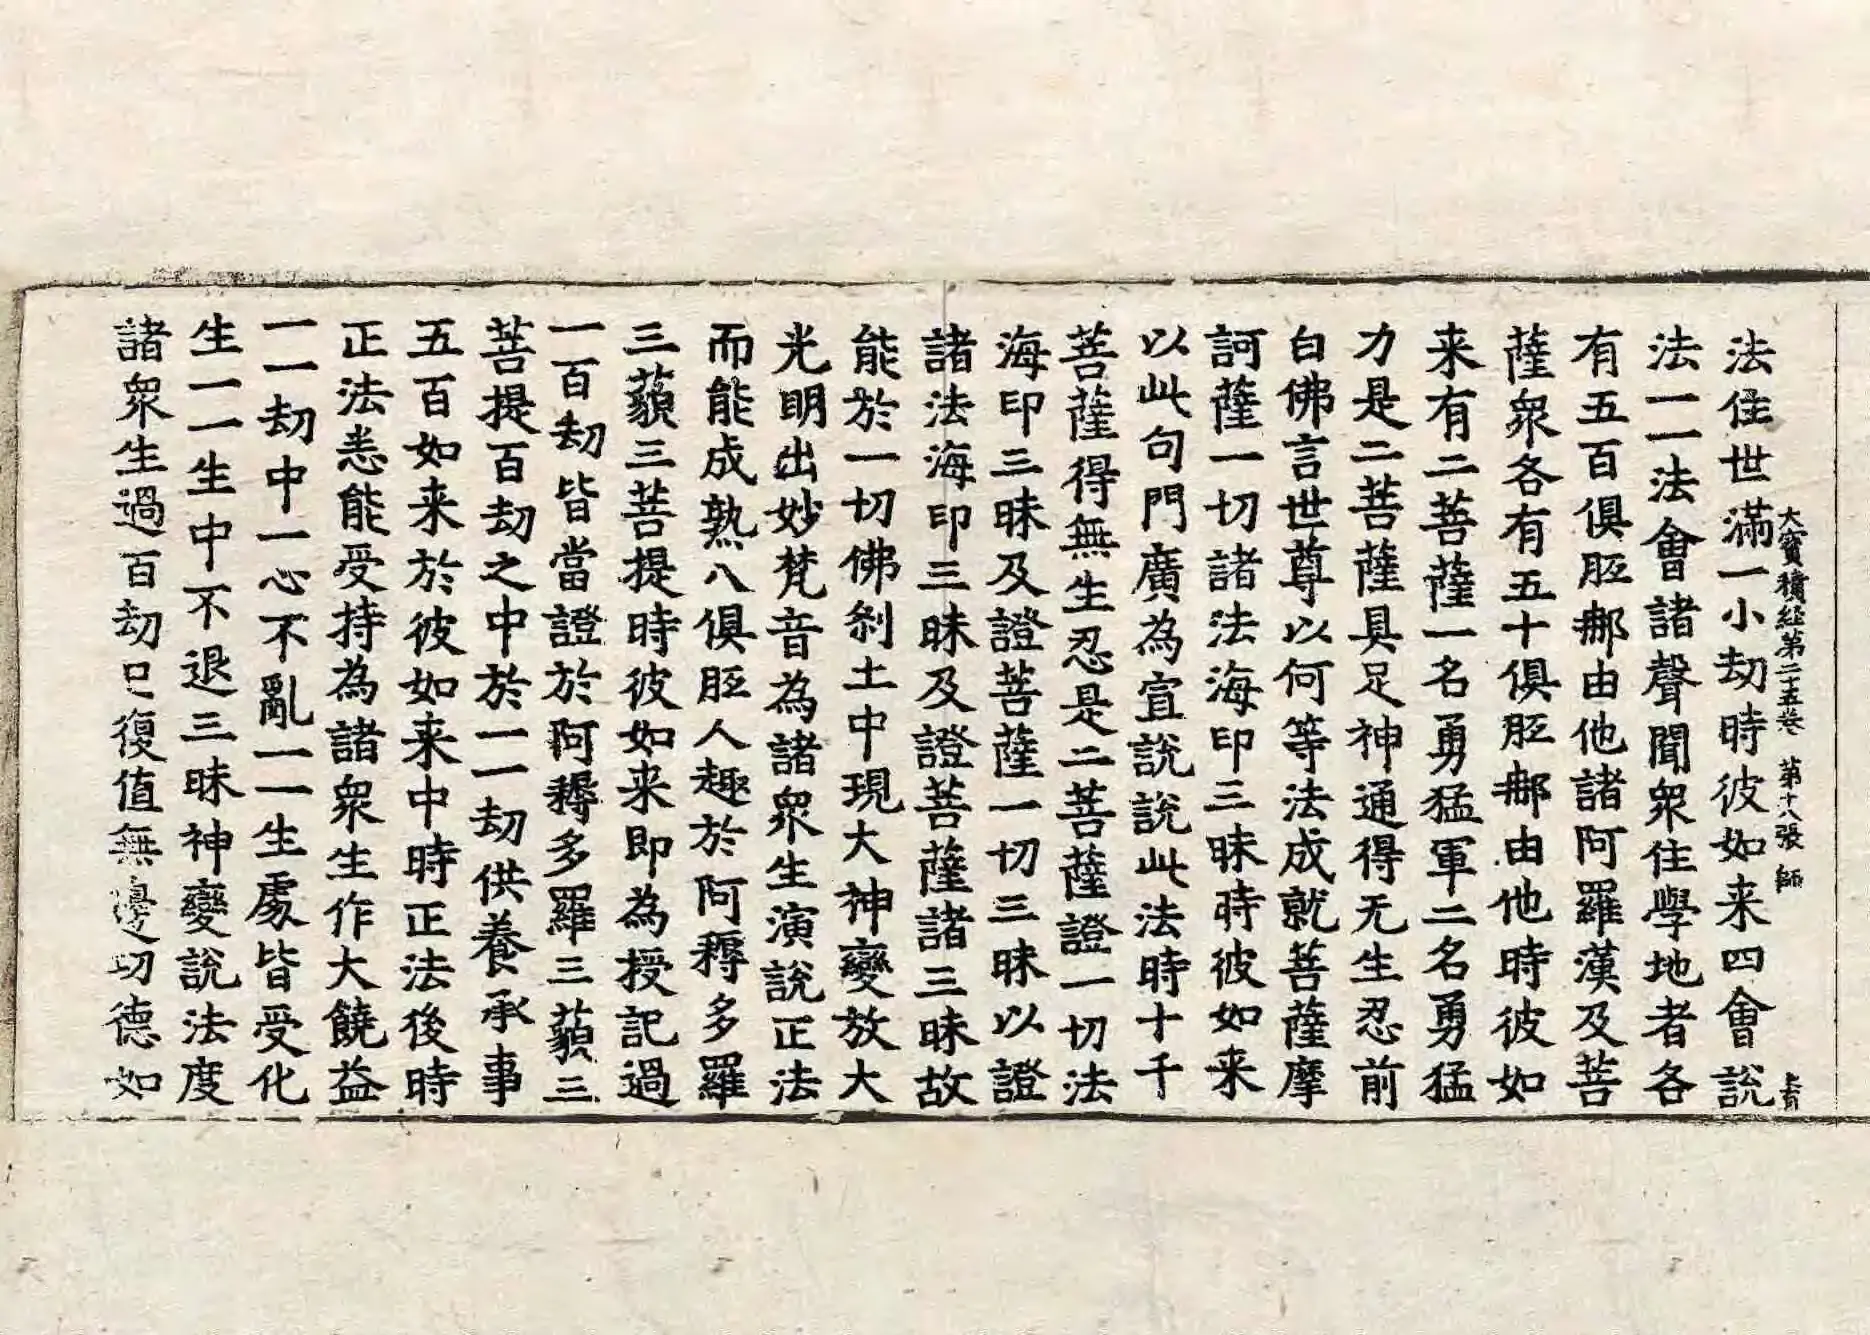 大寶積経第二十五卷 第十八張 師
法住世滿一小劫時彼如来四會說
法一一法會諸聲聞衆住學地者各
有五百俱胝郍由他諸阿羅漢及菩
薩衆各有五十俱胝郍由他時彼如
来有二菩薩一名勇猛軍二名勇猛
力是二菩薩具足神通得无生忍前
白佛言世尊以何等法成就菩薩摩
訶薩一切諸法海印三昧時彼如来
以此句門廣為宣說說此法時十千
菩薩得無生忍是二菩薩證一切法
海印三昧及證菩薩一切三昧以證
諸法海印三昧及證菩薩諸三昧故
能於一切佛剎土中現大神變放大
光明出妙梵音為諸衆生演說正法
而能成熟八俱胝人趣於阿耨多羅
三藐三菩提時彼如来即為授記過
一百劫皆當證於阿耨多羅三藐三
菩提百劫之中於一一劫供養承事
五百如来於彼如来中時正法後時
正法悉能受持為諸衆生作大饒益
一一劫中一心不亂一一生處皆受化
生一一生中不退三昧神變說法度
諸衆生過百劫已復值無邊功德如